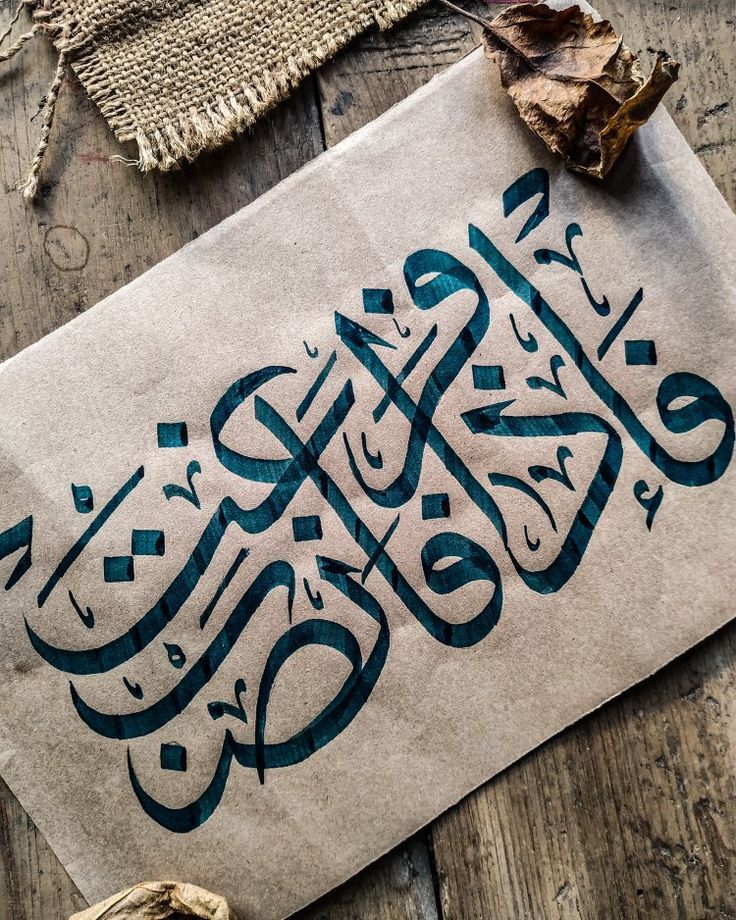 فَإِذَا فَرَغْتَ فَانْصَبْ